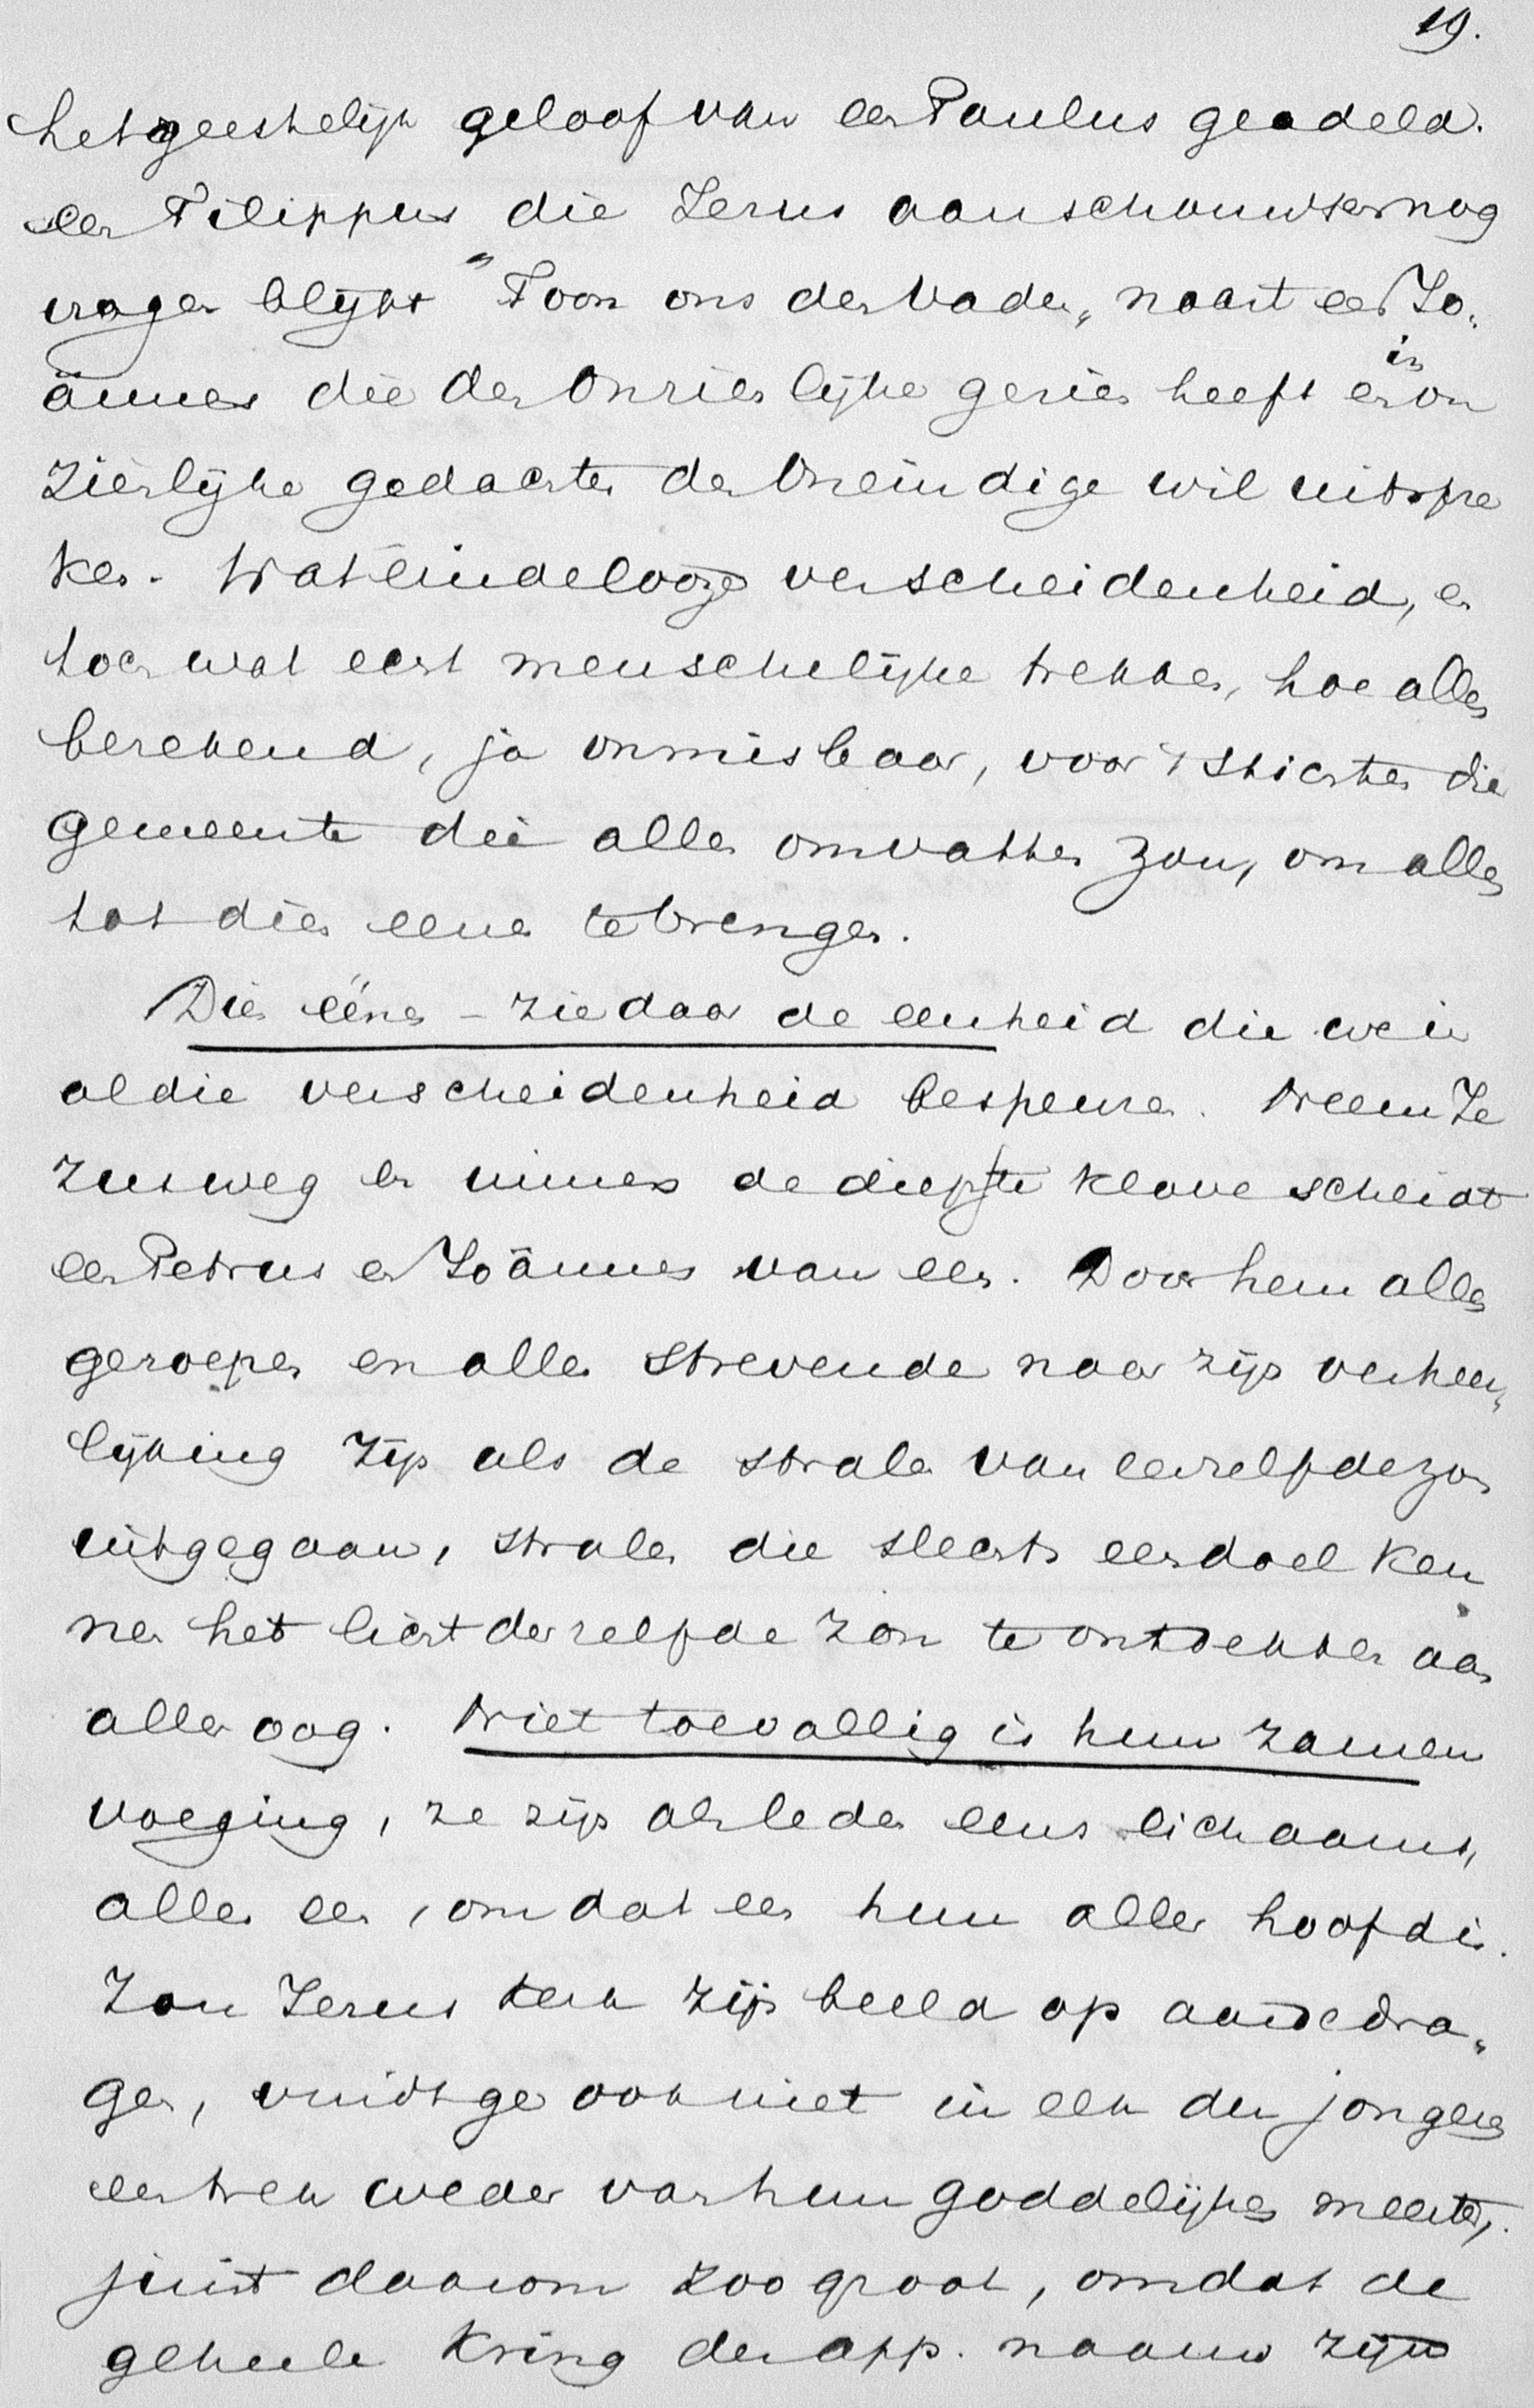 19.
het geestelijk geloof van een Paulus geadeld.
een Filippus die Jezus aanschouwt en nog
vragen blijft "Toon ons den Vader„ naast een Jo„
ännes die den Onzienlijke gezien heeft en in on
zienlijke gedachten den Oneindige wil uitspre
ken. Wat eindelooze verscheidenheid, en
toch wat echt menschelijke trekken, hoe alles
berekend, ja onmisbaar, voor 't stichten die
gemeente die allen omvatten zou, om allen
tot dien eenen te brengen.
Dien éénen – ziedaar de eenheid die we in
al die verscheidenheid bespeuren. Neem Je
zus weg en immer de diepste klove scheidt
een Petrus en Joännes van een. Door hem allen
geroepen en allen strevende naar zijn verheer„
lijking zijn als de stralen van eenzelfde zon
uitgegaan, stralen die slechts een doel ken
nen het licht derzelfde zon te ontdekken aan
aller oog. Niet toevallig is hun zamen
voeging, ze zijn als leden eens lichaams,
allen een, omdat een hun aller hoofd is.
Zou Jezus kerk zijn beeld op aarde dra„
gen, vindt ge ook niet in elk der jongeren
een trek weder van hun goddelijken meester,
juist daarom zoo groot, omdat de
geheele kring der app. naauw zijn